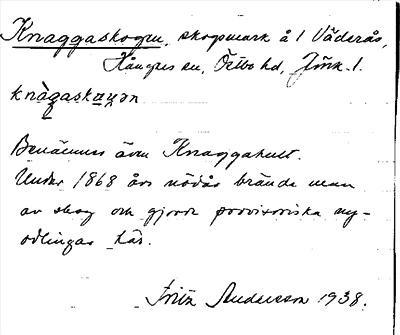 Knaggaskogen, skogsmark å 1 Väderås,
Hångers sn, Östbo hd, Jönk. l.
knàgaskæu̯ən
Benämnes även Knaggahult.
Under 1868 års nödår brände man
av skog och gjorde provisoriska ny-
odlingar här.
Fritz Andersson 1938.